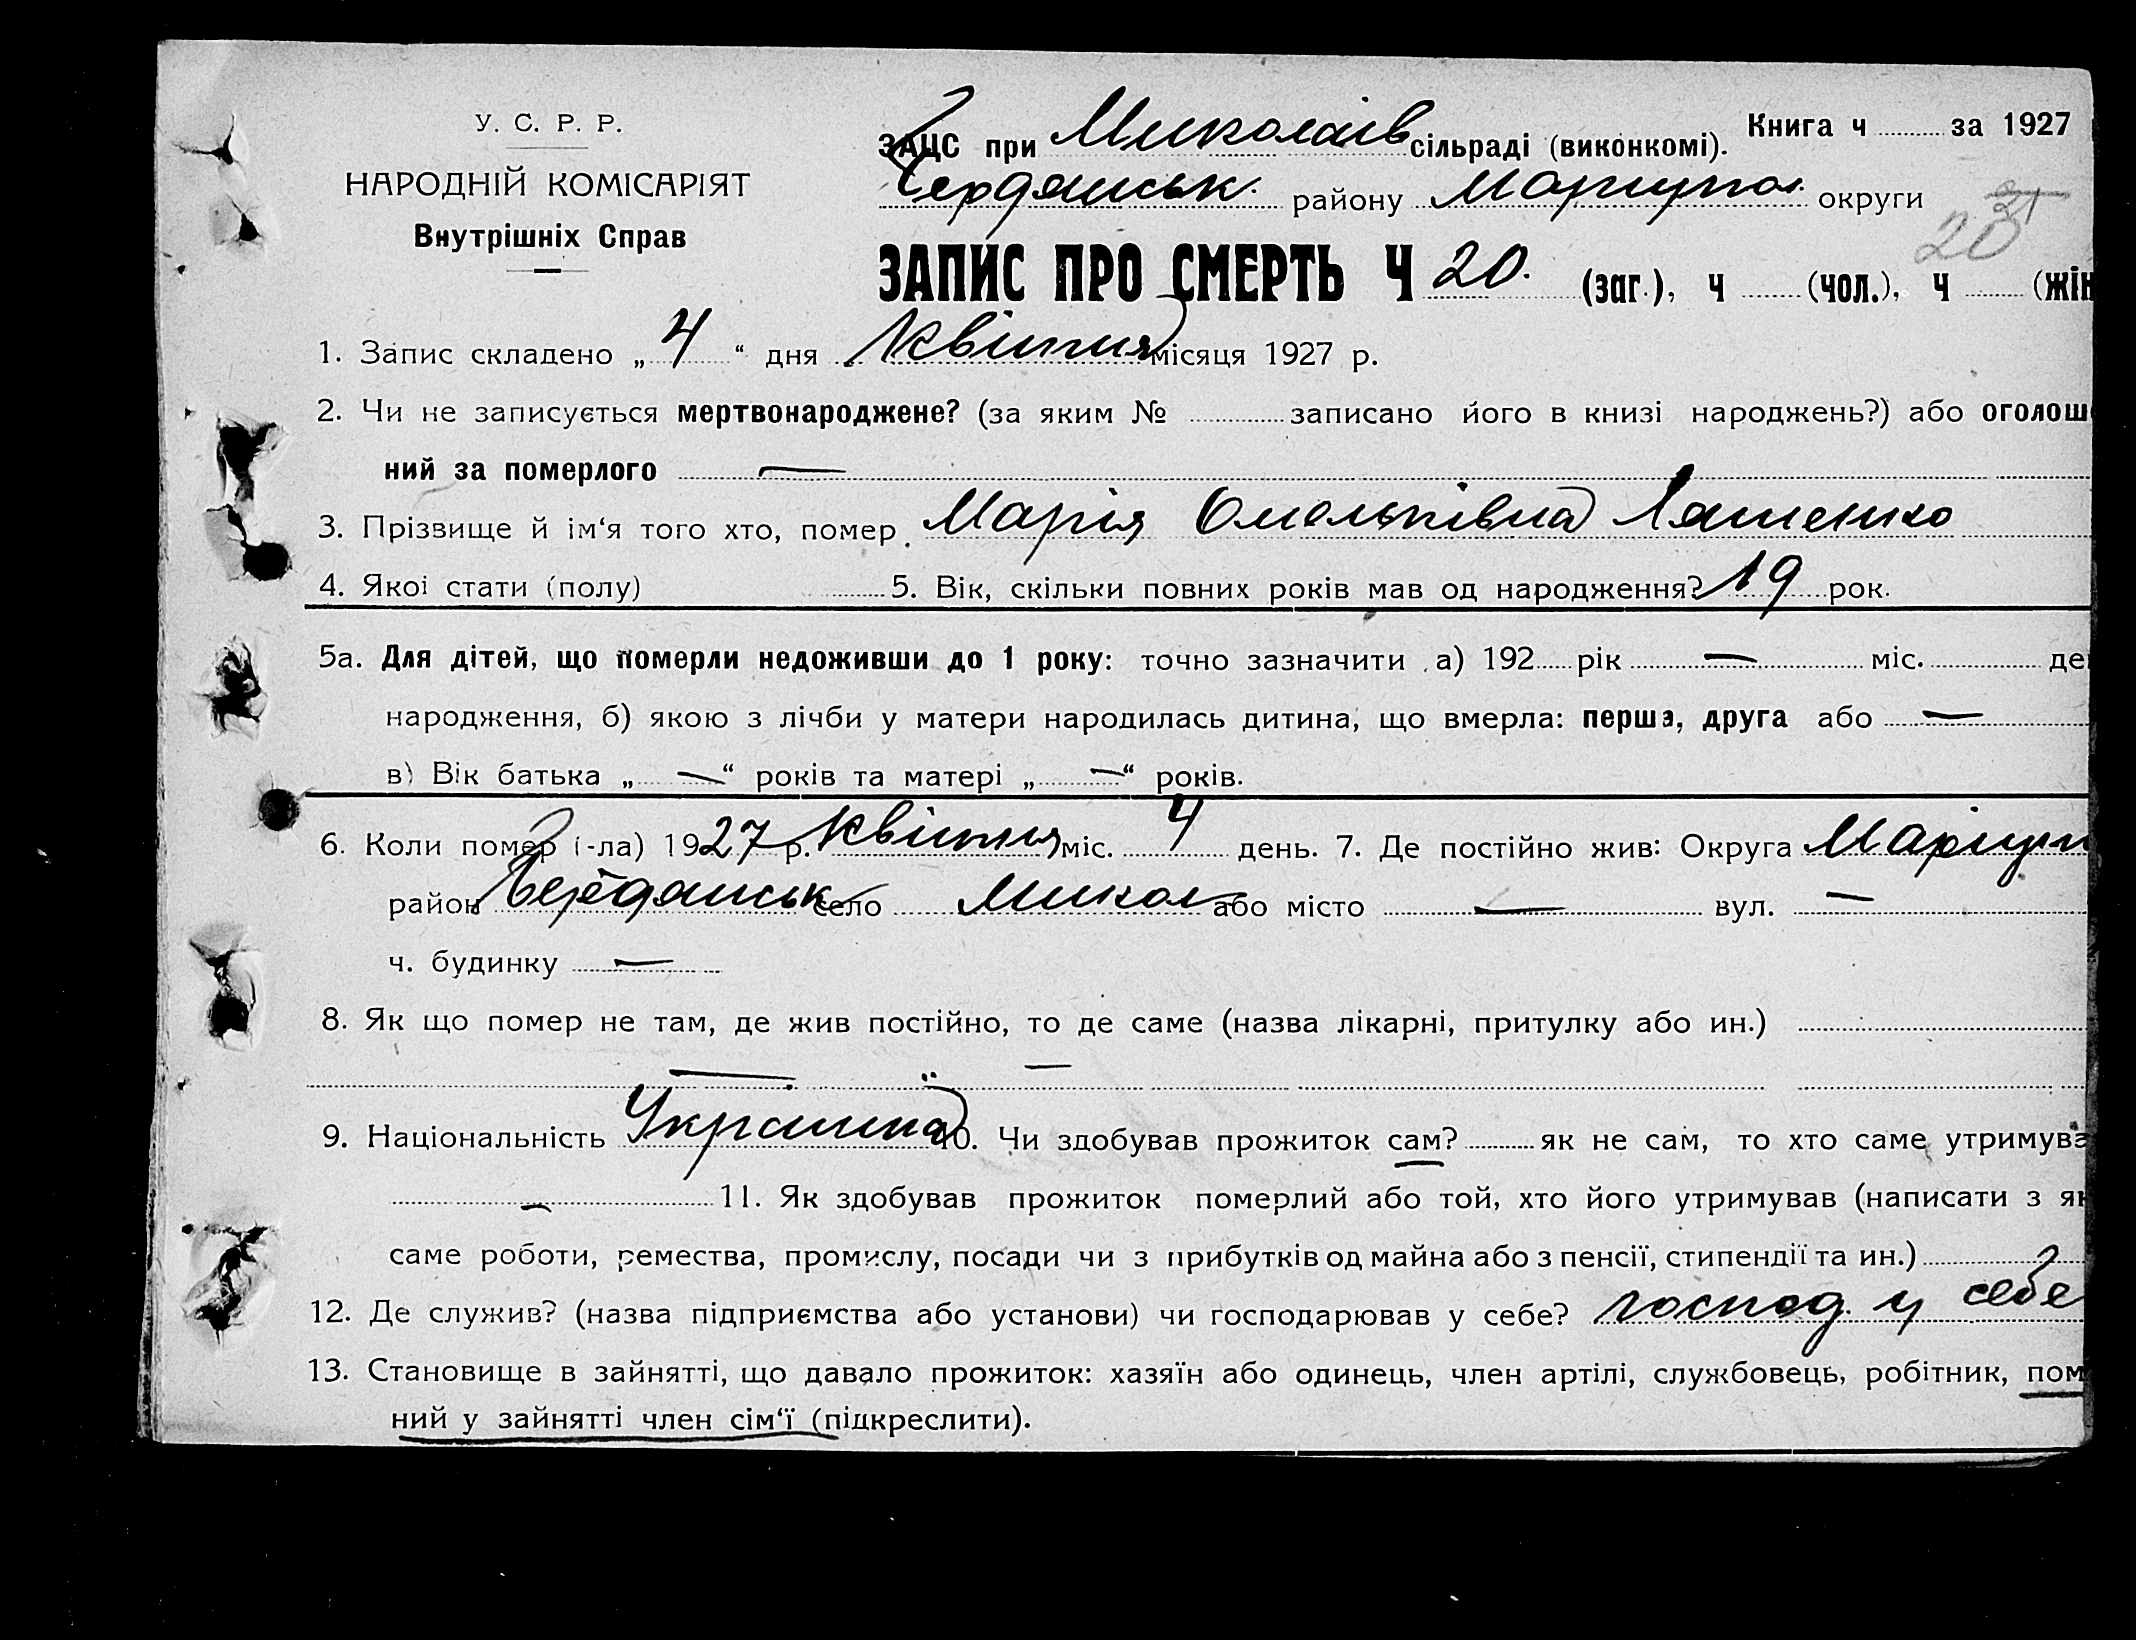 У. С. Р. Р.
НАРОДНІЙ КОМІСАРІЯТ
Внутрішніх Справ
Книга ч за 1927
ЗАЦС при Миколаїв сільраді (виконкомі).
Бердянськ. району Маріупол. округи
ЗАПИС ПРО СМЕРТЬ Ч 20. (заг.), ч (чол.), ч (жін
1. Запис складено „ 4 “ дня Квітня місяця 1927 р.
2. Чи не записується мертвонароджене? (за яким № записано його в книзі народжень?) або оголош
ний за померлого —
3. Прізвище й ім‘я того хто, помер Марія Омельківна Ляшенко
4. Якоі стати (полу) 5. Вік, скільки повних років мав од народження? 19 рок.
5а. Для дітей, що померли недоживши до 1 року: точно зазначити а) 192 рік — міс. де
народження, б) якою з лічби у матери народилась дитина, що вмерла: перша, друга або —
в) Вік батька „ — “ років та матері „ — “ років.
6. Коли помер (-ла) 1927 р. Квітня міс. 4 день. 7. Де постійно жив: Округа Маріуп
район Бердянськ село Микол або місто — вул. —
ч. будинку —
8. Як що помер не там, де жив постійно, то де саме (назва лікарні, притулку або ин.)
— —
9. Національність Українка 10. Чи здобував прожиток сам? як не сам, то хто саме утримува
— 11. Як здобував прожиток померлий або той, хто його утримував (написати з як
саме роботи, ремества, промислу, посади чи з прибутків од майна або з пенсії, стипендії та ин.)
12. Де служив? (назва підприємства або установи) чи господарював у себе? господ. у себе
13. Становище в зайнятті, що давало прожиток: хазяїн або одинець, член артілі, службовець, робітник, пом
ний у зайнятті член сім‘ї (підкреслити).